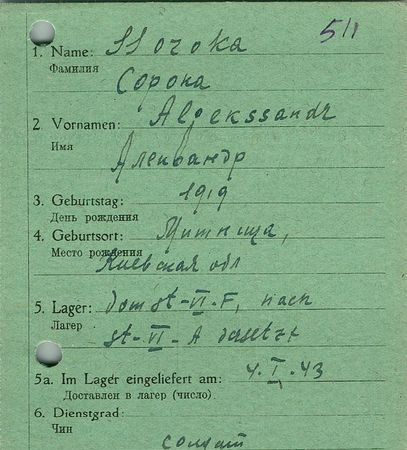 5/1
1. Name: Ssoroka
Фамилия
Сорока
2. Vornamen: Alekssandr
Имя
Александр
3. Geburtstag: 1919
День рождения
4. Geburtsort: Митница,
Место рождения
Киевская обл
5. Lager: st-VI-F, nach
Лагер
st-VI-A
5a. Im Lager eingeliefert am: 4.I.43
Доставлен в лагер (число)
6. Dienstgrad:
Чин
солдат